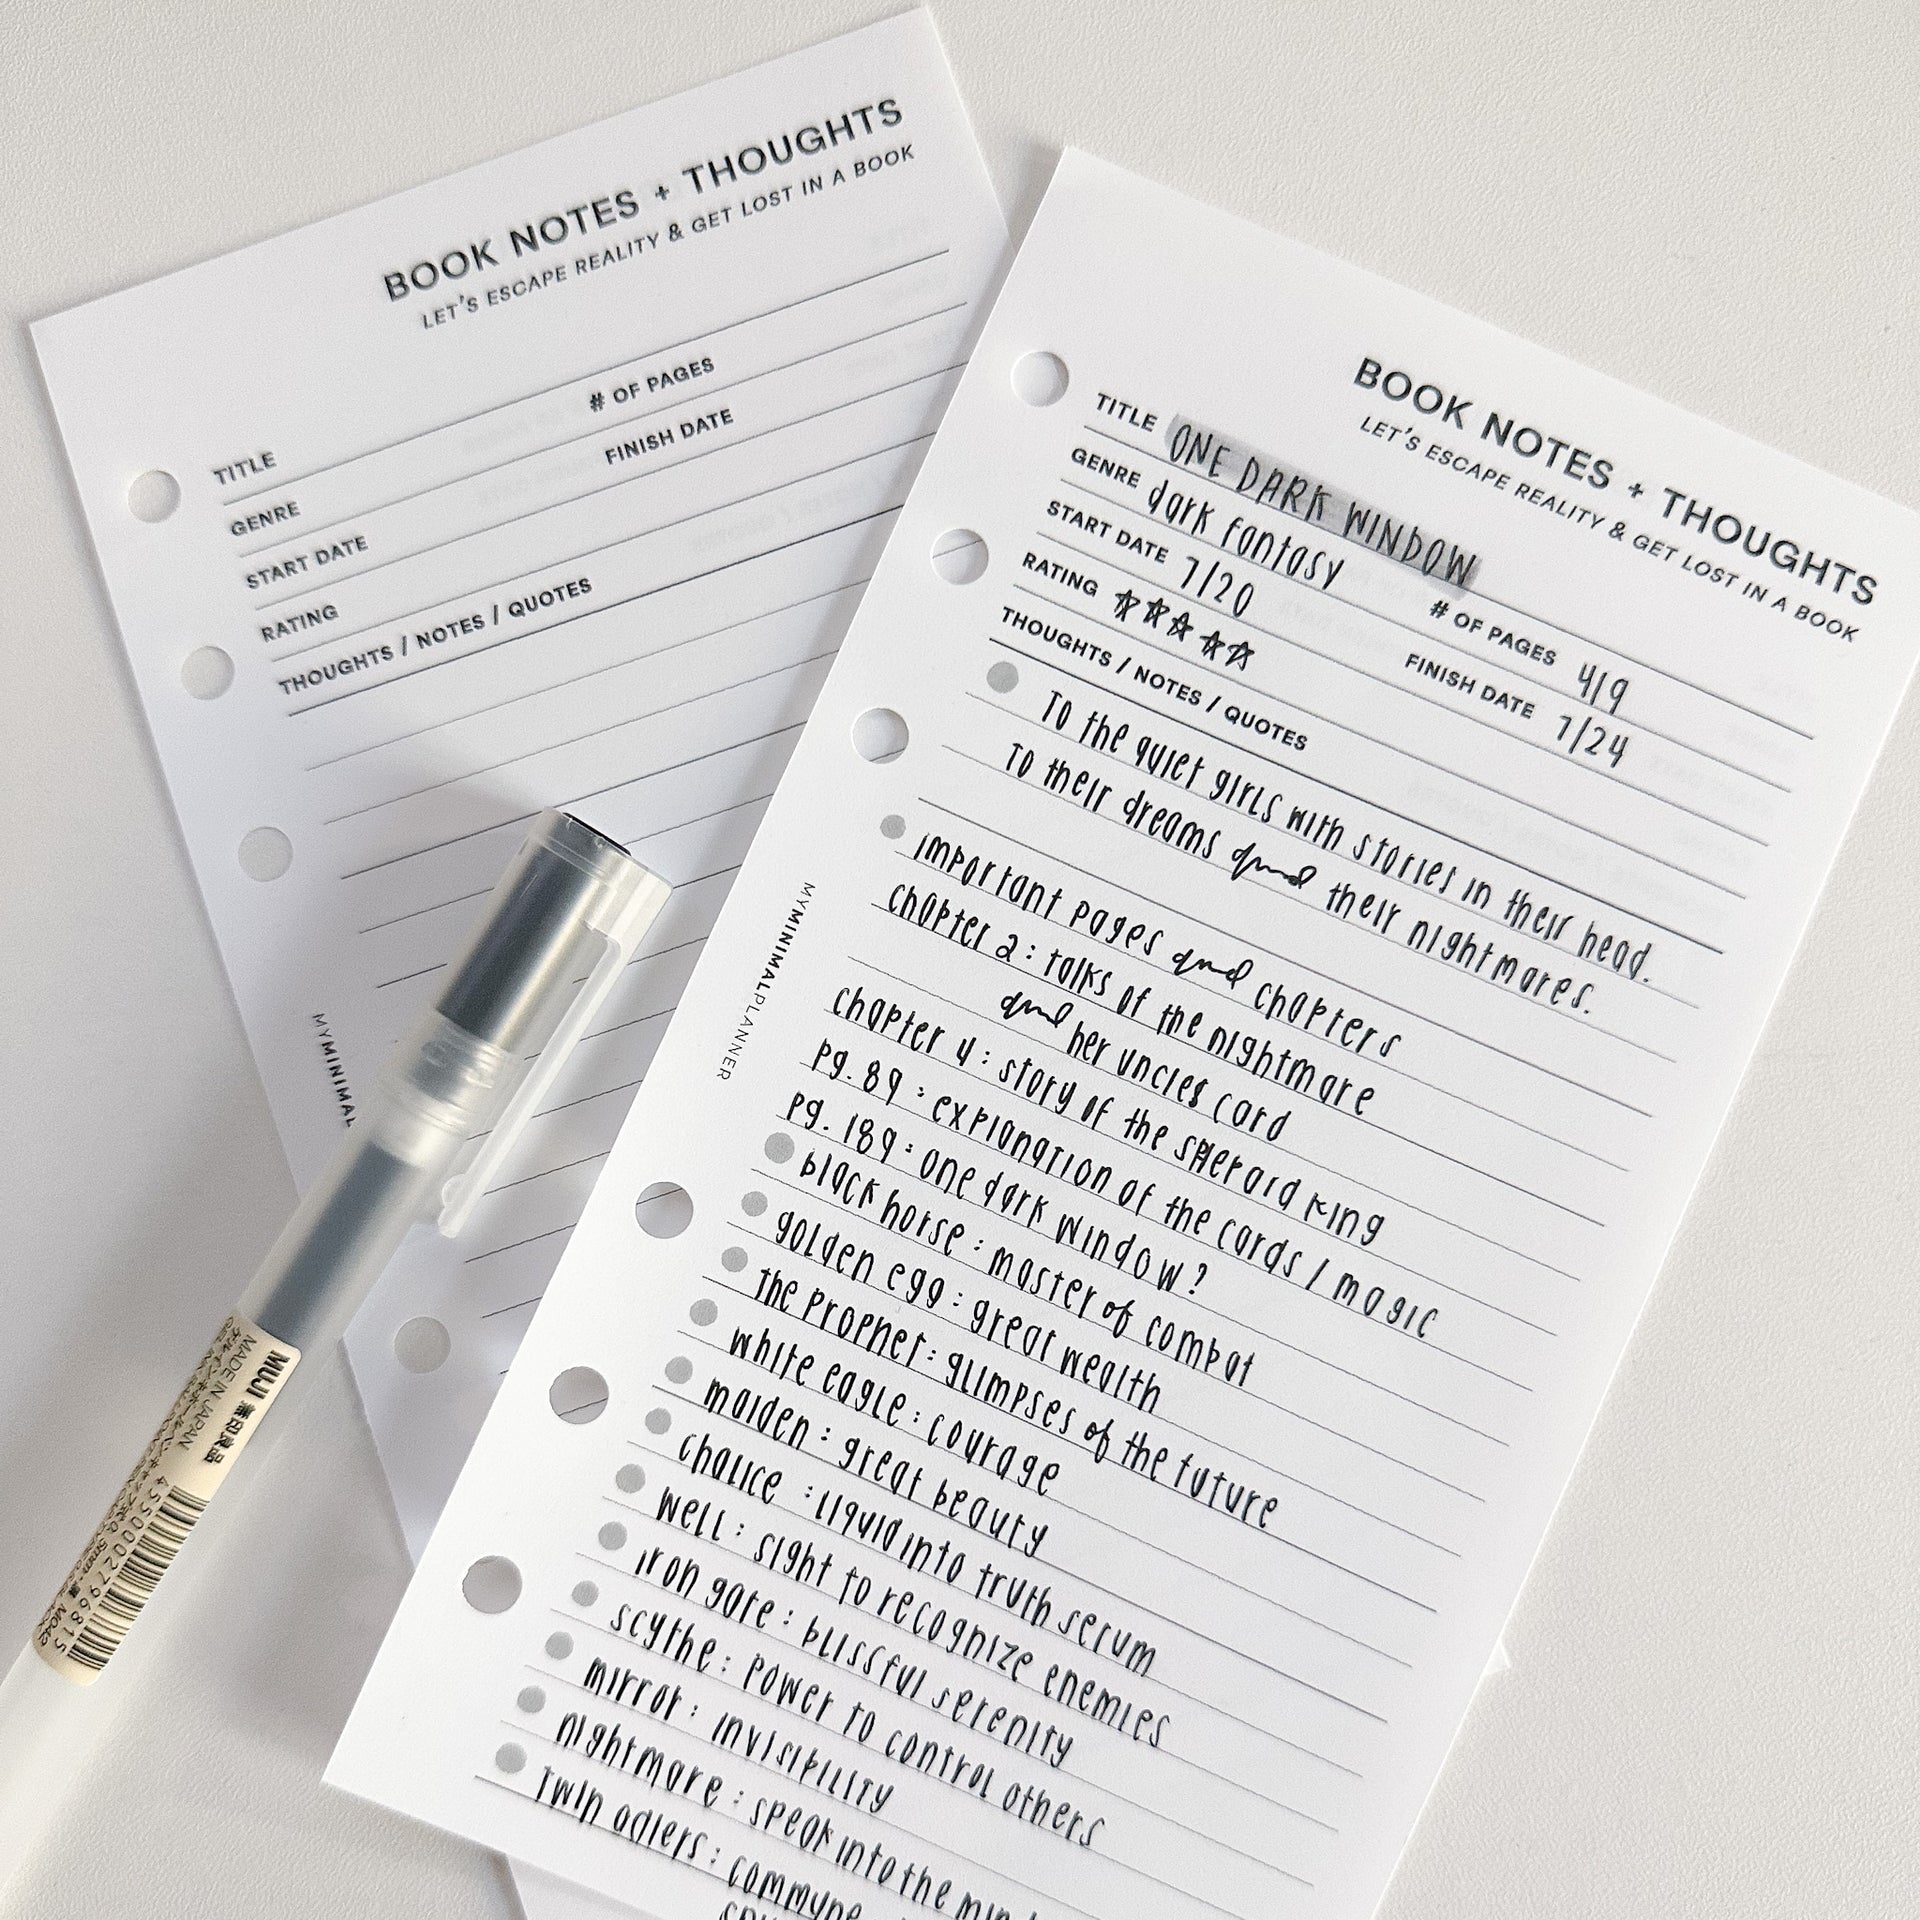 BOOK NOTES + THOUGHTS
LET'S ESCAPE REALITY & GET LOST IN A BOOK
TITLE
GENRE # OF PAGES
START DATE FINISH DATE
RATING
THOUGHTS / NOTES / QUOTES
MYMINIMAL
MUJI 無印良品
MADE IN JAPAN
4550002796815
BOOK NOTES + THOUGHTS
LET'S ESCAPE REALITY & GET LOST IN A BOOK
TITLE ONE DARK WINDOW
GENRE dark fantasy # OF PAGES 419
START DATE 7/20 FINISH DATE 7/24
RATING ☆☆☆☆☆
THOUGHTS / NOTES / QUOTES
To the quiet girls with stories in their head.
To their dreams and their nightmares.
important pages and chapters
chapter 2: talks of the nightmare
and her uncles card
chapter 4: story of the sheperd king
pg. 89: explanation of the cards / magic
pg. 189: one dark window?
black horse: master of combat
golden egg: great wealth
the prophet: glimpses of the future
white eagle: courage
maiden: great beauty
chalice: liquid into truth serum
well: sight to recognize enemies
iron gate: blissful serenity
scythe: power to control others
mirror: invisibility
nightmare: speak into the
twin alders: commune
MYMINIMALPLANNER